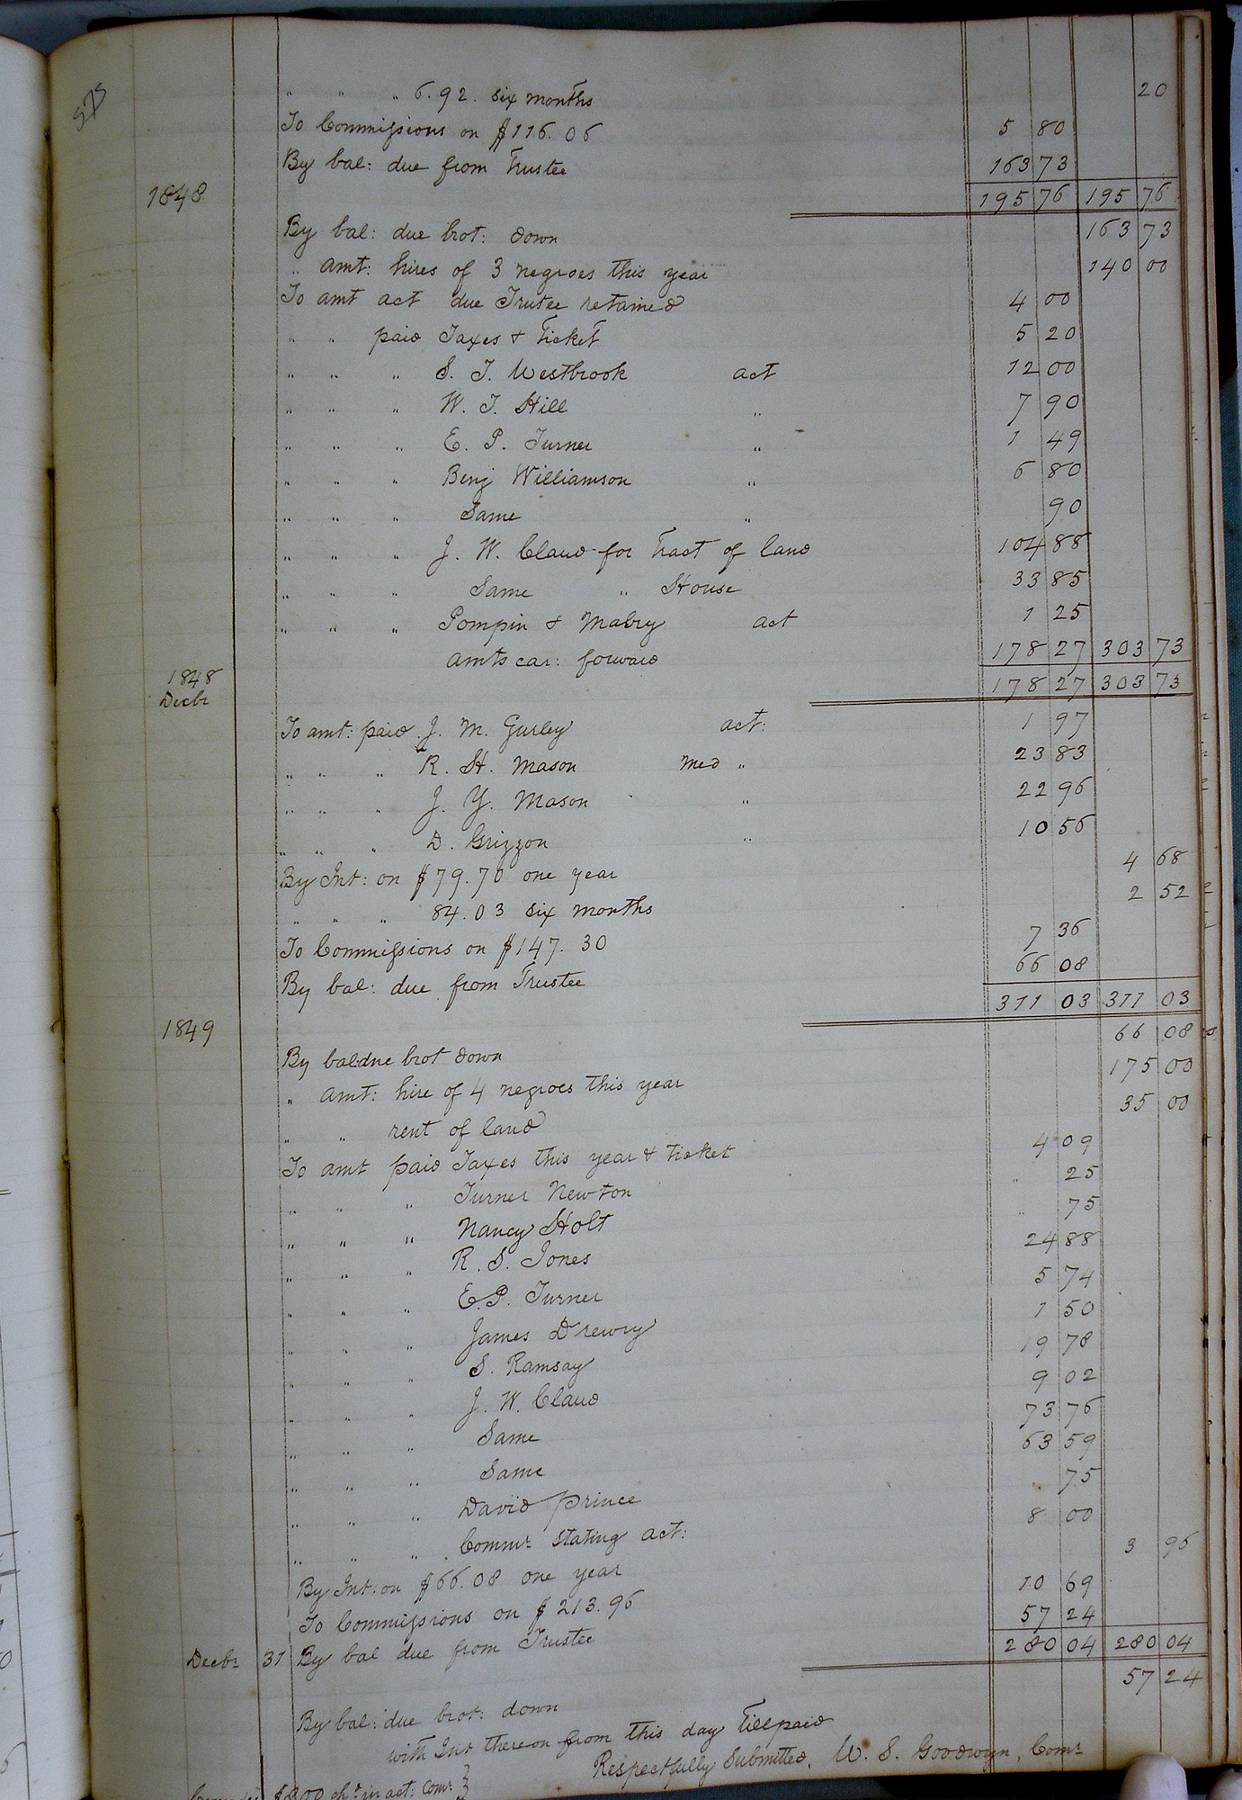 575
" " " 6.92. six months 20
To Commissions on $116.06 5 80
By bal: due from Trustee 163 73
1848 195 76 195 76
By bal: due brot: down 163 73
" amt: hires of 3 negroes this year 140 00
To amt act due Trutee retained 4 00
" " paid Taxes & Ticket 5 20
" " " S. T. Westbrook act 12 00
" " " W. T. Hill " 7 90
" " " E. P. Turner " 1 49
" " " Benj Williamson " 6 80
" " " Same " 90
" " " J. W. Claud for Tract of land 104 88
" " " Same " House 33 85
" " " Pompin & Mabry act 1 25
amts car: forward 178 27 303 73
1848 Decbr 178 27 303 73
To amt: paid J. M. Gurley act: 1 97
" " " R. H. Mason Med " 23 83
" " " J. Y. Mason " 22 96
" " " D. Grizzon " 10 56
By Int: on $79.70 one year 4 68
" " " 84.03 six months 2 52
To Commissions on $147.30 7 36
By bal: due from Trustee 66 08
311 03 311 03
1849 66 08
By bal due brot down 175 00
" amt: hire of 4 negroes this year 35 00
" " rent of land
To amt paid Taxes this year & ticket 4 09
" " " Turner Newton " 25
" " " Nancy Holt " 75
" " " R. S. Jones 24 88
" " " E. P. Turner 5 74
" " " James Drewry 1 50
" " " S. Ramsay 19 78
" " " J. W. Claud 9 02
" " " Same 73 76
" " " Same 63 59
" " " David Prince 75
" " " Commr stating act: 8 00
By Int: on $66.08 one year 3 96
To Commissions on $213.96 10 69
Decbr 31 By bal due from Trustee 57 24
280 04 280 04
By bal: due brot: down 57 24
with Int thereon from this day till paid
Respectfully Submitted, W. S. Goodwyn, Comr